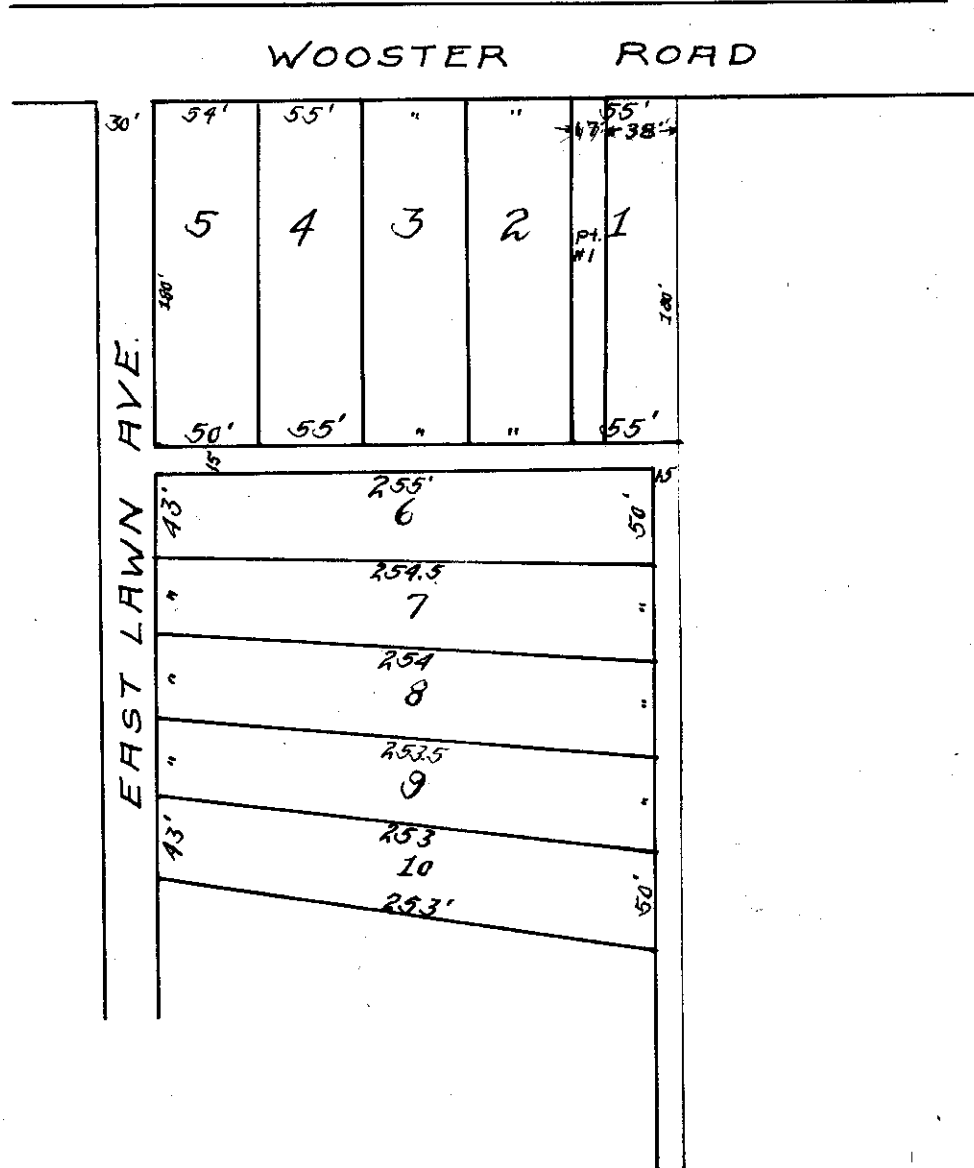 WOOSTER ROAD
30' 54' 55' " " 55'
17' 38'
5 4 3 2 pt. #1 1
180' 180'
50' 55' " " 55'
15 15
EAST LAWN AVE.
255'
43' 6 50'
254.5
" 7 "
254
" 8 "
253.5
" 9 "
253
43' 10 50'
253'